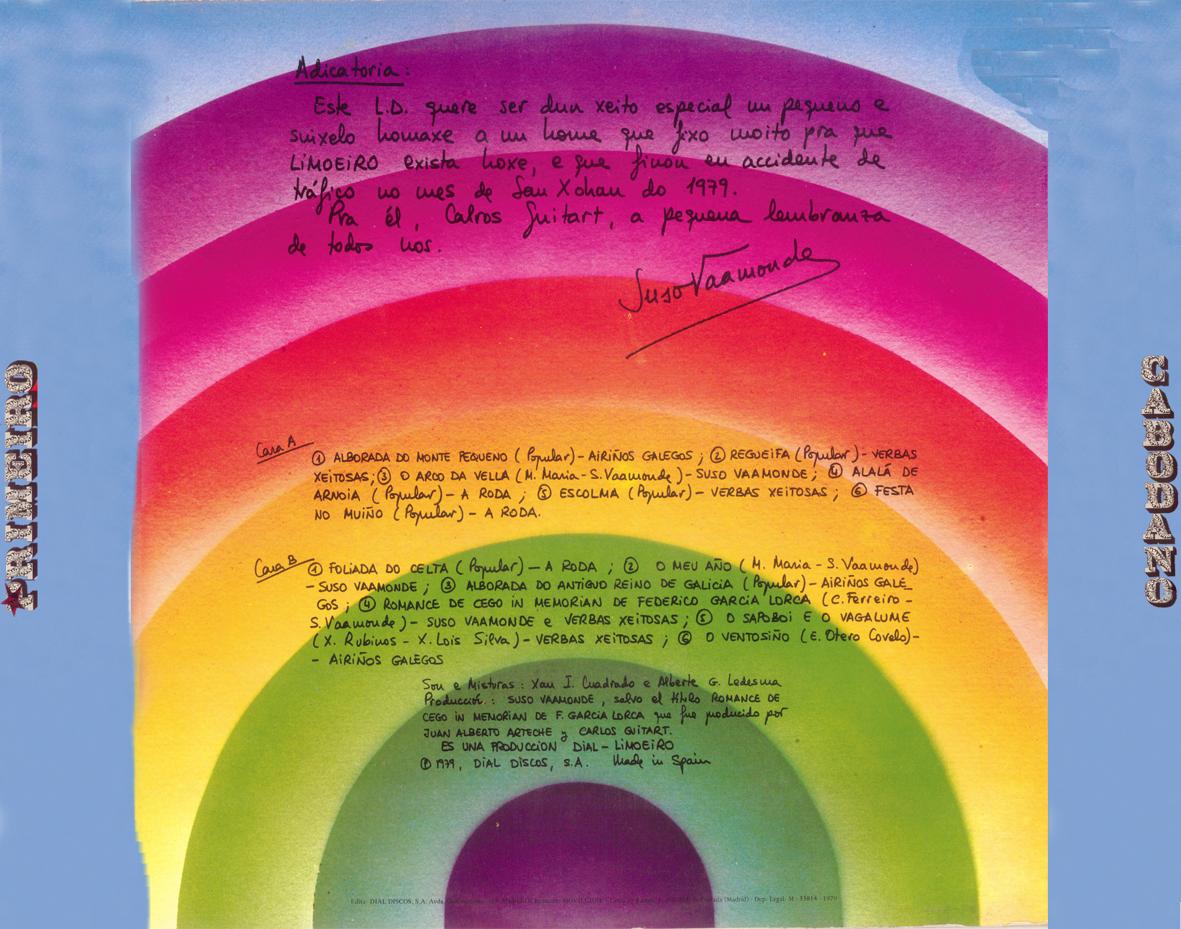 Adicatoria:
Este L.D. quere ser dun xeito especial un pequeno e
sinxelo homaxe a un home que fixo moito pra que
LiMOEIRO exista hoxe, e que finou en accidente de
tráfico no mes de San Xohan do 1979.
Pra él, Calros Guitart, a pequena lembranza
de todos nos.
Suso Vaamonde
PRIMEIRO
CABODANO
Cara A
① ALBORADA DO MONTE PEQUENO (Popular) - AIRIÑOS GALEGOS ; ② REGUEIFA (Popular) - VERBAS
XEITOSAS ; ③ O ARCO DA VELLA (M. Maria - S. Vaamonde) - SUSO VAAMONDE ; ④ ALALÁ DE
ARNOIA (Popular) - A RODA ; ⑤ ESCOLMA (Popular) - VERBAS XEITOSAS ; ⑥ FESTA
NO MUIÑO (Popular) - A RODA.
Cara B
① FOLIADA DO CELTA (Popular) - A RODA ; ② O MEU AÑO (M. Maria - S. Vaamonde)
- SUSO VAAMONDE ; ③ ALBORADA DO ANTIGUO REINO DE GALICIA (Popular) - AIRIÑOS GALE_
GOS ; ④ ROMANCE DE CEGO IN MEMORIAN DE FEDERICO GARCIA LORCA (C. Ferreiro -
S. Vaamonde) - SUSO VAAMONDE e VERBAS XEITOSAS ; ⑤ O SAPOBOI E O VAGALUME
(X. Rubinos - X. Lois Silva) - VERBAS XEITOSAS ; ⑥ O VENTOSIÑO (E. Otero Covelo) -
- AIRIÑOS GALEGOS
Son e Misturas : Xan I. Cuadrado e Alberte G. Ledesma
Producción : SUSO VAAMONDE, salvo el título ROMANCE DE
CEGO IN MEMORIAN DE F. GARCIA LORCA que fue producido por
JUAN ALBERTO ARTECHE y CARLOS GUITART.
ES UNA PRODUCCION DIAL - LIMOEIRO
℗ 1979, DIAL DISCOS, S.A. Made in Spain
Edita: DIAL DISCOS, S.A. Avda. (Madrid) - Dep. Legal: M - 33814 - 1979